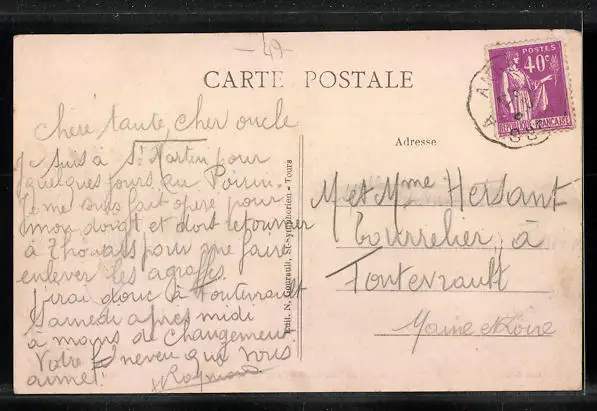 -49-
CARTE POSTALE
POSTES
40c
REPUBLIQUE FRANÇAISE
Adresse
Chère tante, cher oncle
Je suis à St Martin pour
quelques jours au Poirin.
Je me suis fait opéré pour
mon doigt et dois retourner
à Thouars pour me faire
enlever les agraffes.
J'irai donc à Fontevrault
Samedi après midi
à moins de changement.
Votre neveu qui vous
aime!
Edit. N. Gourault, St-Symphorien - Tours
M et Mme Hersant
Bourrelier à
Fontevrault
Maine et Loire